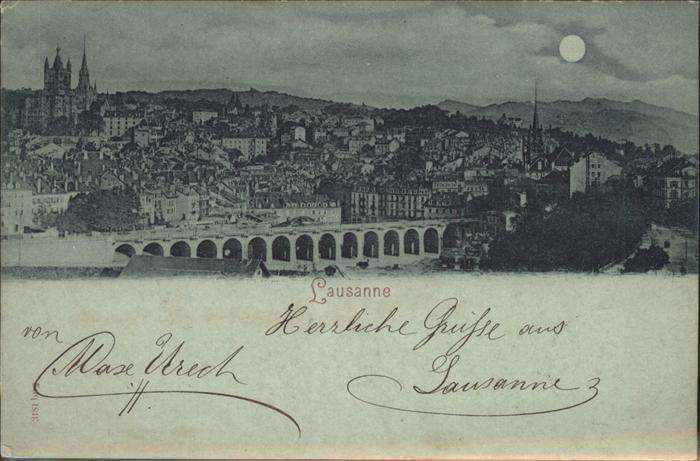 Lausanne
Herrliche Grüße aus
Lausanne
von
Max Urech